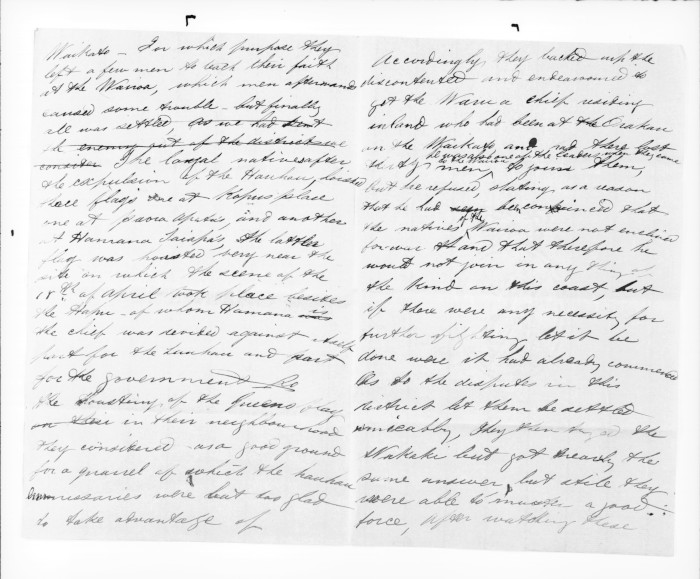 Waikato – For which purpose they
left a few men to teach their faith
at the Wairoa, which men afterwards
caused some trouble – but finally
all was settled, as we had sent
the enemy out of the district we
consider The loyal natives after
the expulsion of the Hauhau, hoisted
these flags one at Kopus place
one at paora Aputus, and another
at Hamana Taiapis, the latter
flag was hoisted very near the
site on which the scene of the
18th of April took place besides
the Hapu – of whom Hamana is
the chief was devided against itself
part for the hauhau and part
for the government So
the hoisting of the Queens flag
on their in their neighbourhood
they considered – as a good ground
for a quarrel of which the hauhau
emissaries were but too glad
to take advantage of
Accordingly they backed up the
discontented and endeavoured to
got the Wairua a chief residing
inland who had been at the Orakau
in the Waikato and had there lost
he was also one of the when they came
thirty men, to the Wairoa to join them,
but he refused stating as a reason
that he had seen been convinced that
the natives of the Wairoa were not enclined
for war and that therefore he
would not join in any thing of
the kind on this coast, but
if there were any necessity for
further fighting let it be
done were it had already commenced
As to the disputes in this
district let them be settled
amicably, They then tryed the
Wakaki but got treavly the
same answer, but stile they
were able to muster a good
force, after watching these